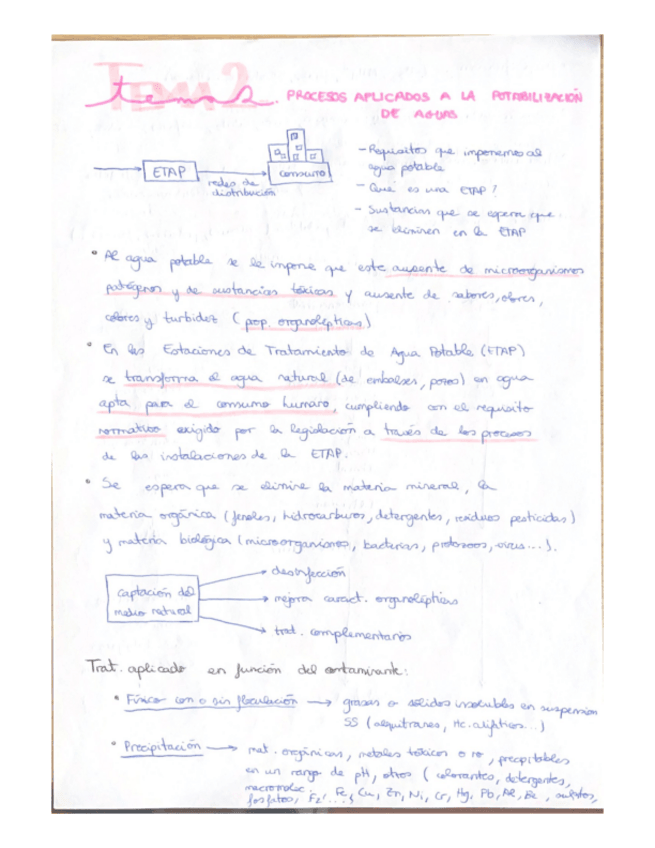 Tema 2. PROCESOS APLICADOS A LA POTABILIZACIÓN
DE AGUAS
ETAP
redes de
distribución
consumo
- Requisitos que imponemos al
agua potable
- Qué es una ETAP?
- Sustancias que se espera que
se eliminen en la ETAP
• Al agua potable se le impone que este ausente de microorganismos
patógenos y de sustancias tóxicas y ausente de sabores, olores,
colores y turbidez (prop. organolépticas)
• En las Estaciones de Tratamiento de Agua Potable (ETAP)
se transforma el agua natural (de embalses, pozos) en agua
apta para el consumo humano, cumpliendo con el requisito
normativo exigido por la legislación a través de los procesos
de las instalaciones de la ETAP.
• Se espera que se elimine la materia mineral, la
materia orgánica (fenoles, hidrocarburos, detergentes, residuos pesticidas)
y materia biológica (microorganismos, bacterias, protozoos, virus...).
captación del
medio natural
desinfección
mejora caract. organolépticas
trat. complementarios
Trat. aplicado en función del contaminante:
• Físico con o sin floculación → grasas o sólidos insolubles en suspensión
SS (alquitranes, Hc. alifticos...)
• Precipitación → mat. orgánicas, metales tóxicos o no, precipitables
en un rango de pH, otros (colorantes, detergentes,
macromolec.
fosfatos, Fe, Cu, Zn, Ni, Cr, Hg, Pb, Al, Be, sulfitos,